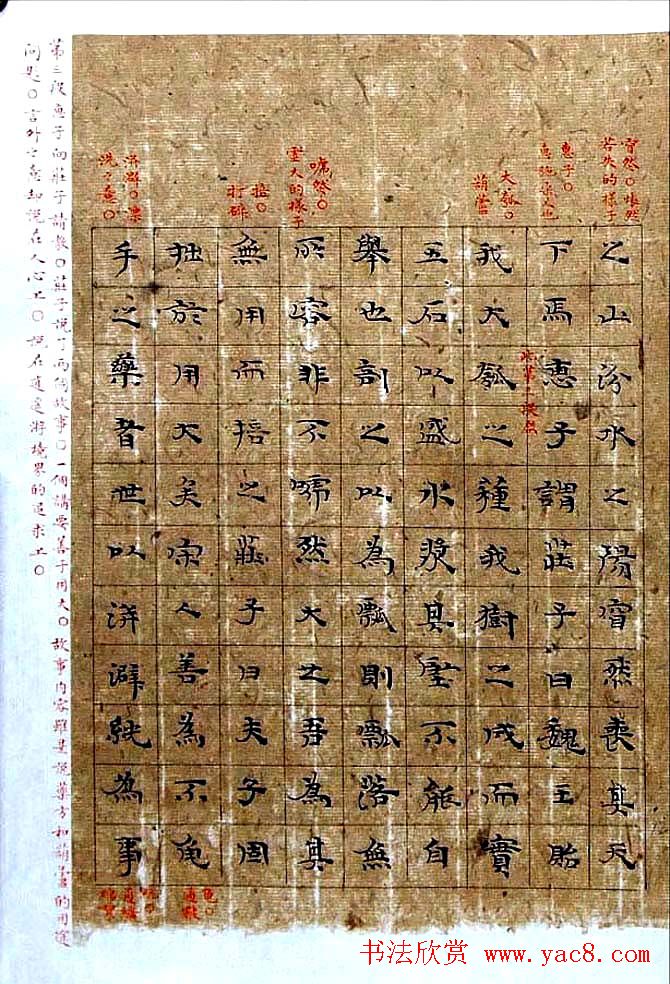 窅然○悵然
若失的樣子
惠子○
惠施宋人也
大瓠○
葫蘆
呺然○
虛大的樣子
掊○
打碎
洴澼○漂
洗之意○
之山汾水之陽窅然喪其天
下焉惠子謂莊子曰魏王貽
我大瓠之種我樹之成而實
五石以盛水漿其堅不能自
舉也剖之以為瓢則瓢落無
所容非不呺然大也吾為其
無用而掊之莊子曰夫子固
拙於用大矣宋人善為不龜
手之藥者世以洴澼絖為事
龜○
通皸
第三段惠子向莊子請教○莊子說了兩個故事○一個講要善于用大○故事內容雖是說藥方和葫蘆的用途
問題○言外之意却說在人心上○說在逍遙游境界的追求上○
书法欣赏 www.yac8.com